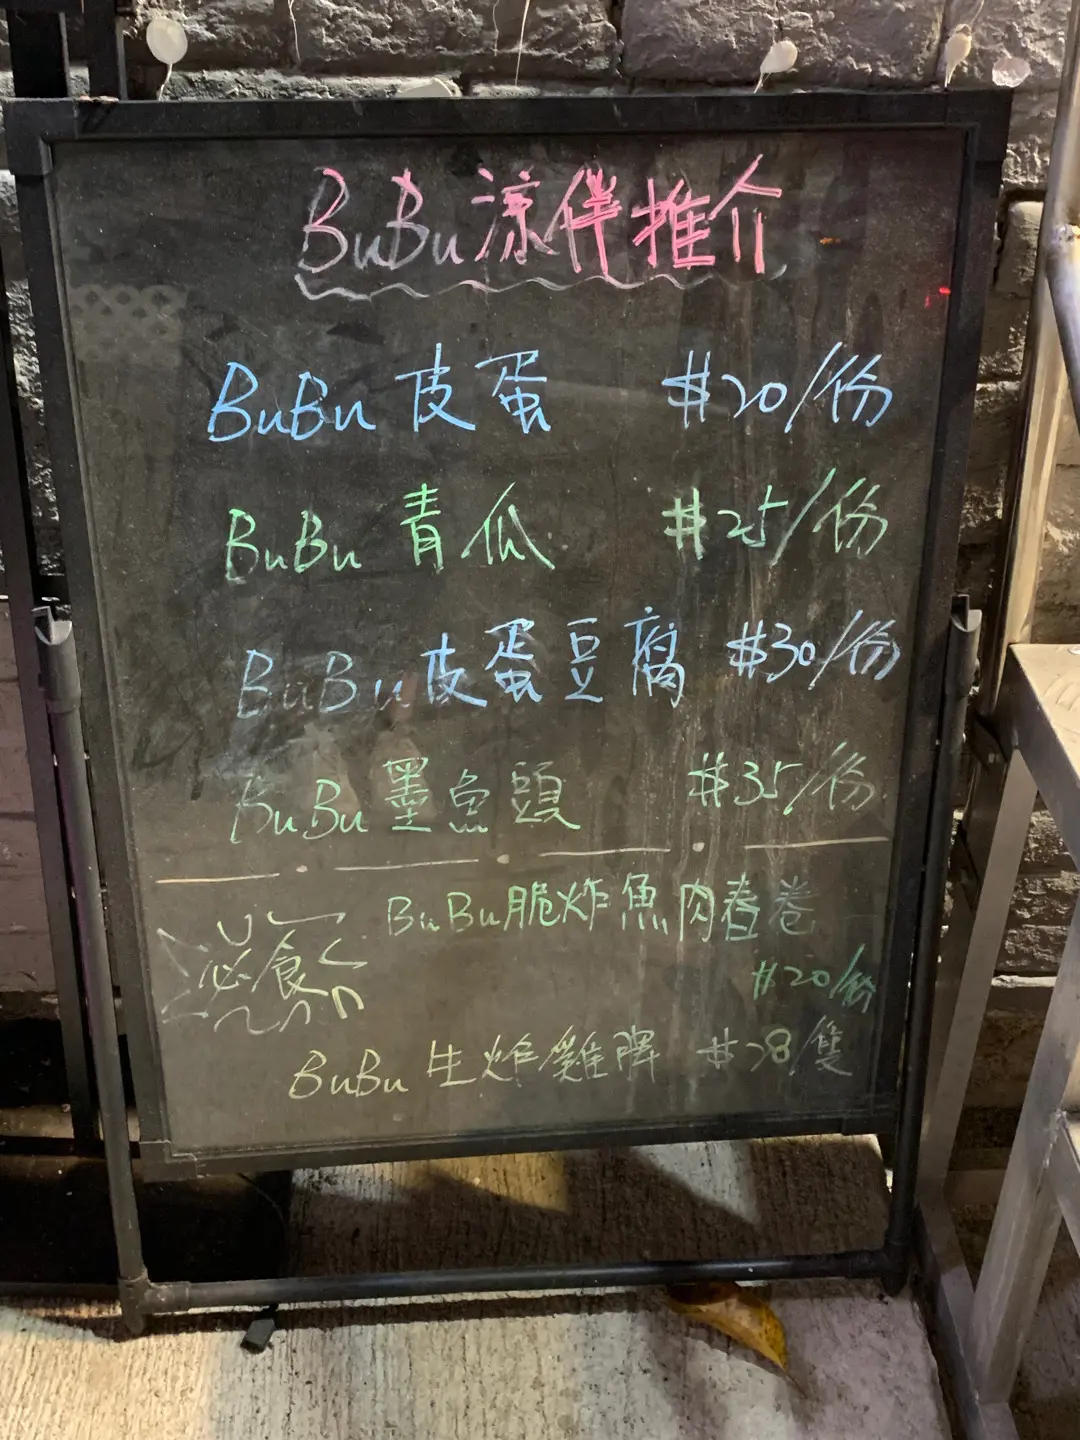 BuBu涼伴推介
BuBu 皮蛋 $20/份
BuBu 青瓜 $25/份
BuBu 皮蛋豆腐 $30/份
BuBu 墨魚頭 $35/份
必食
BuBu脆炸魚肉春卷
$20/份
BuBu 生炸雞髀 $28/隻